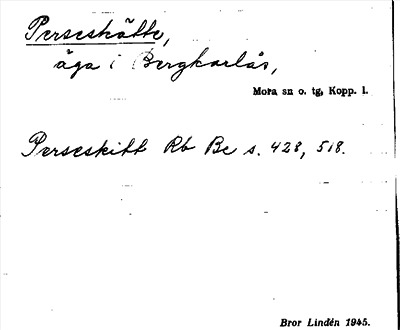 Perseskätte,
äga i Bergkarlås,
Mora sn o. tg, Kopp. l.
Perseskitt Rb Be s. 428, 518.
Bror Lindén 1945.